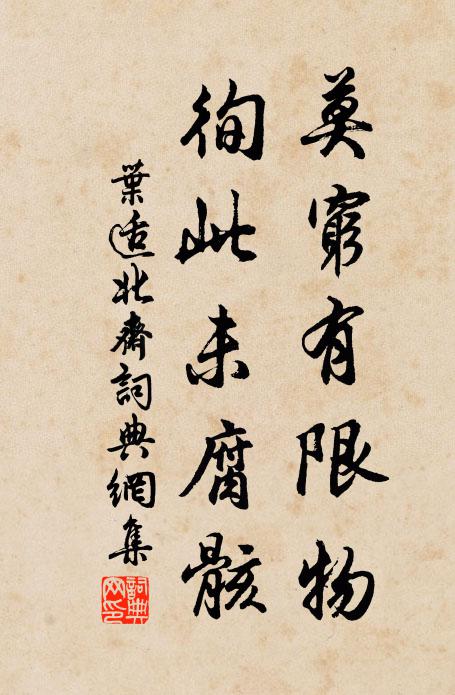 莫窮有限物
徇此未腐骸
葉适北齋詞典網集
詞典网印